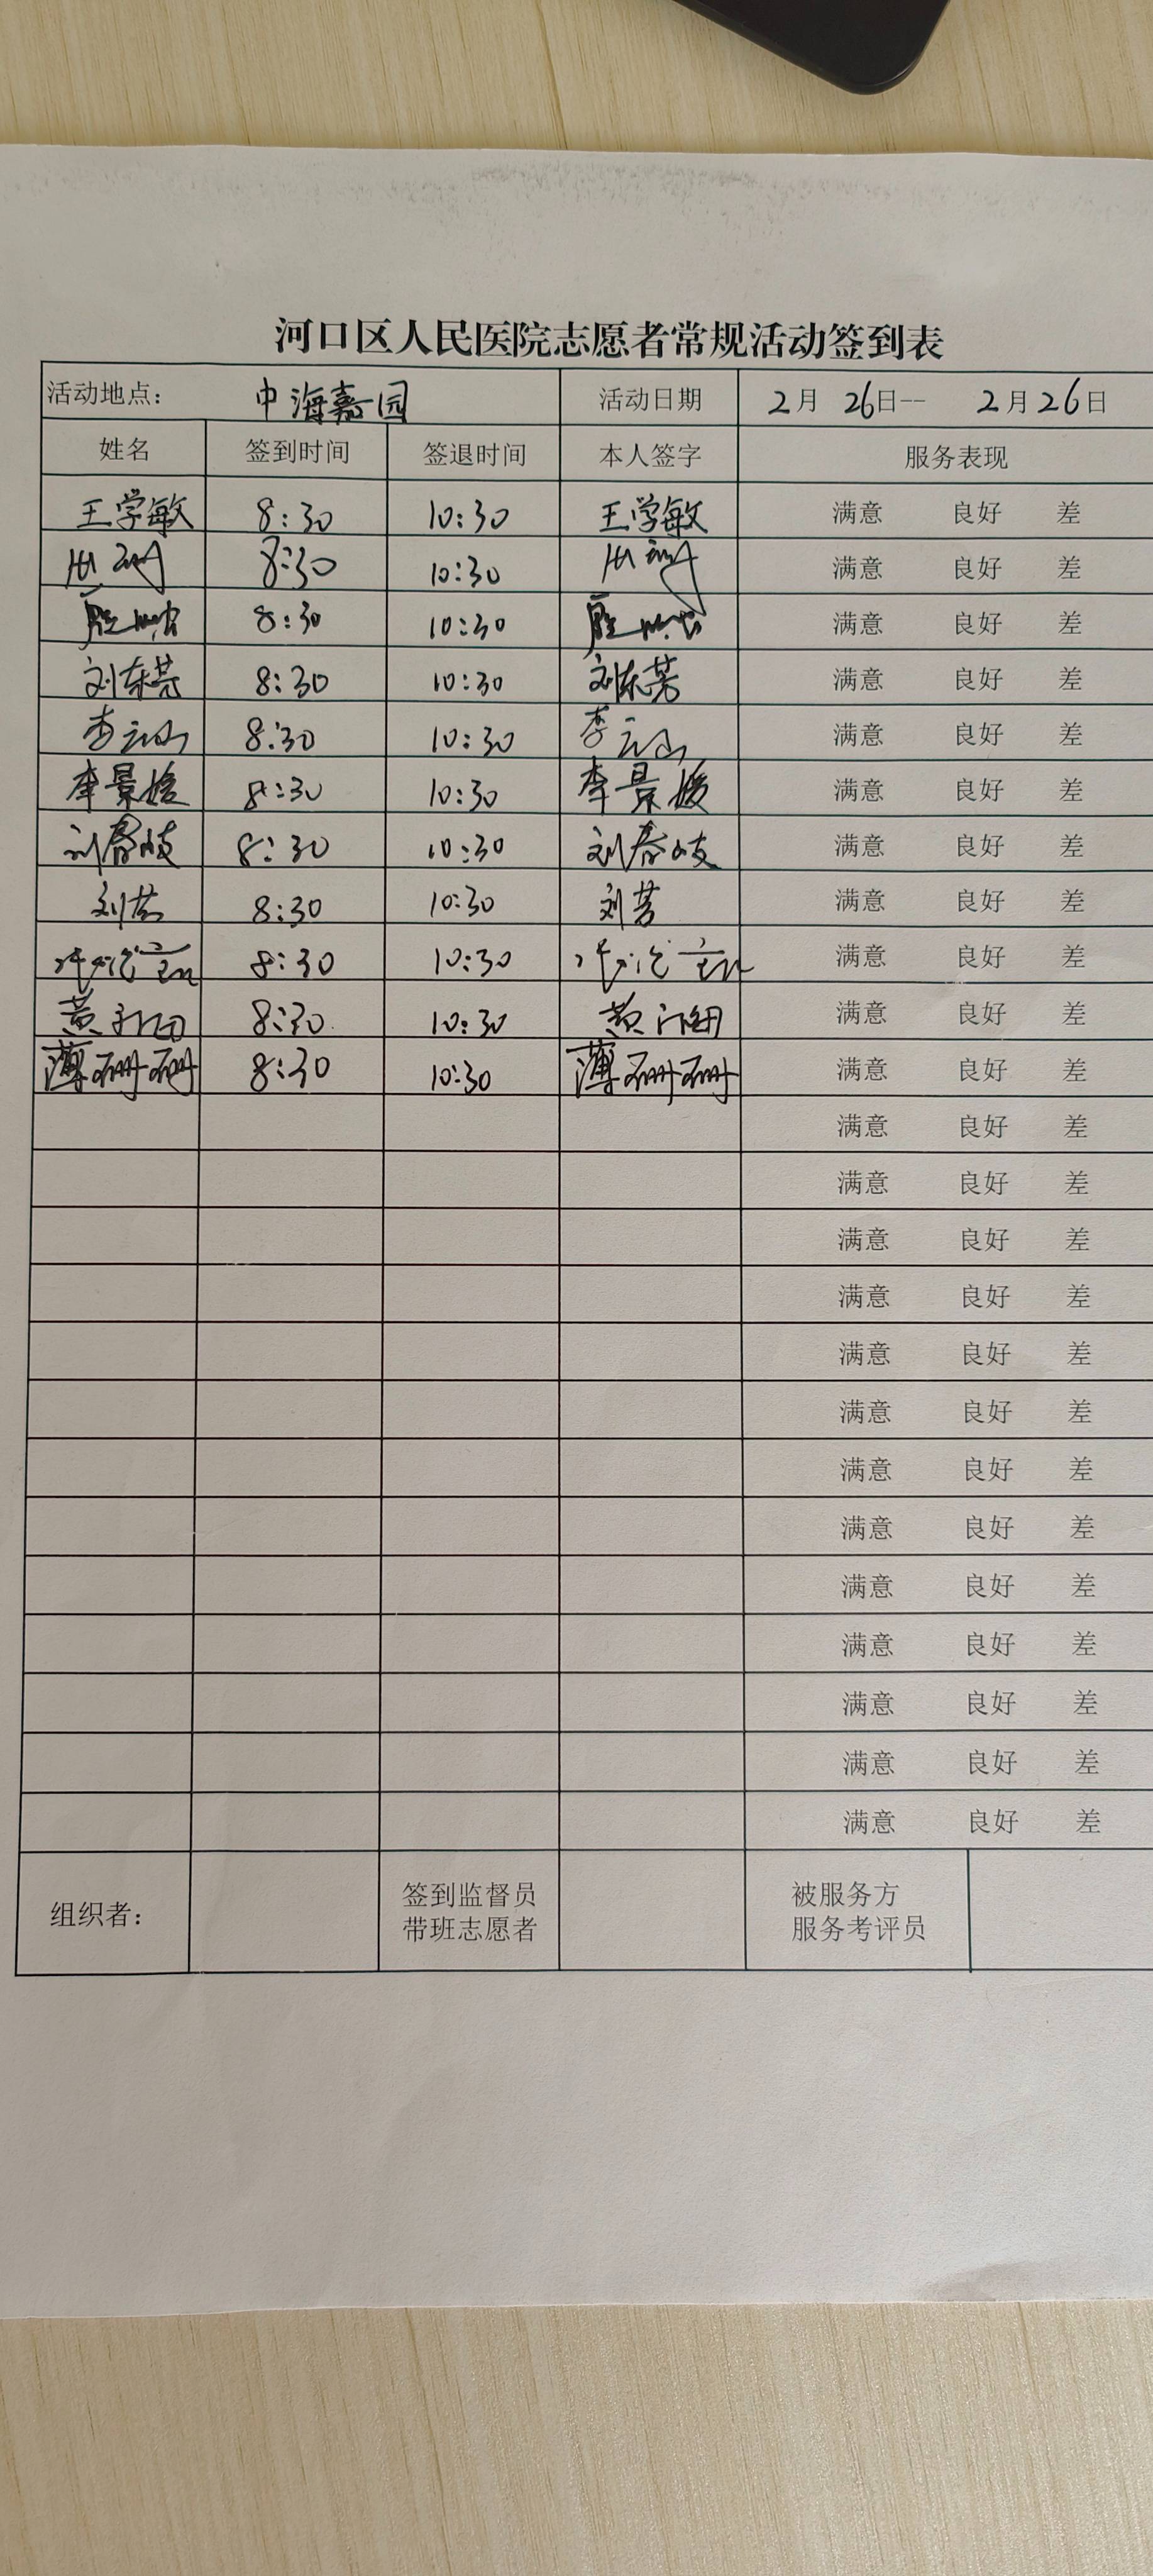 河口区人民医院志愿者常规活动签到表
活动地点： 中海嘉园 活动日期 2月 26日-- 2月26日
姓名 签到时间 签退时间 本人签字 服务表现
王学敏 8:30 10:30 王学敏 满意 良好 差
8:30 10:30 满意 良好 差
8:30 10:30 满意 良好 差
刘东芳 8:30 10:30 刘东芳 满意 良好 差
李 8:30 10:30 李 满意 良好 差
李景媛 8:30 10:30 李景媛 满意 良好 差
刘春岐 8:30 10:30 刘春岐 满意 良好 差
刘芳 8:30 10:30 刘芳 满意 良好 差
8:30 10:30 满意 良好 差
黄 8:30 10:30 黄 满意 良好 差
薄珊珊 8:30 10:30 薄珊珊 满意 良好 差
满意 良好 差
满意 良好 差
满意 良好 差
满意 良好 差
满意 良好 差
满意 良好 差
满意 良好 差
满意 良好 差
满意 良好 差
满意 良好 差
满意 良好 差
满意 良好 差
满意 良好 差
组织者： 签到监督员 被服务方
带班志愿者 服务考评员